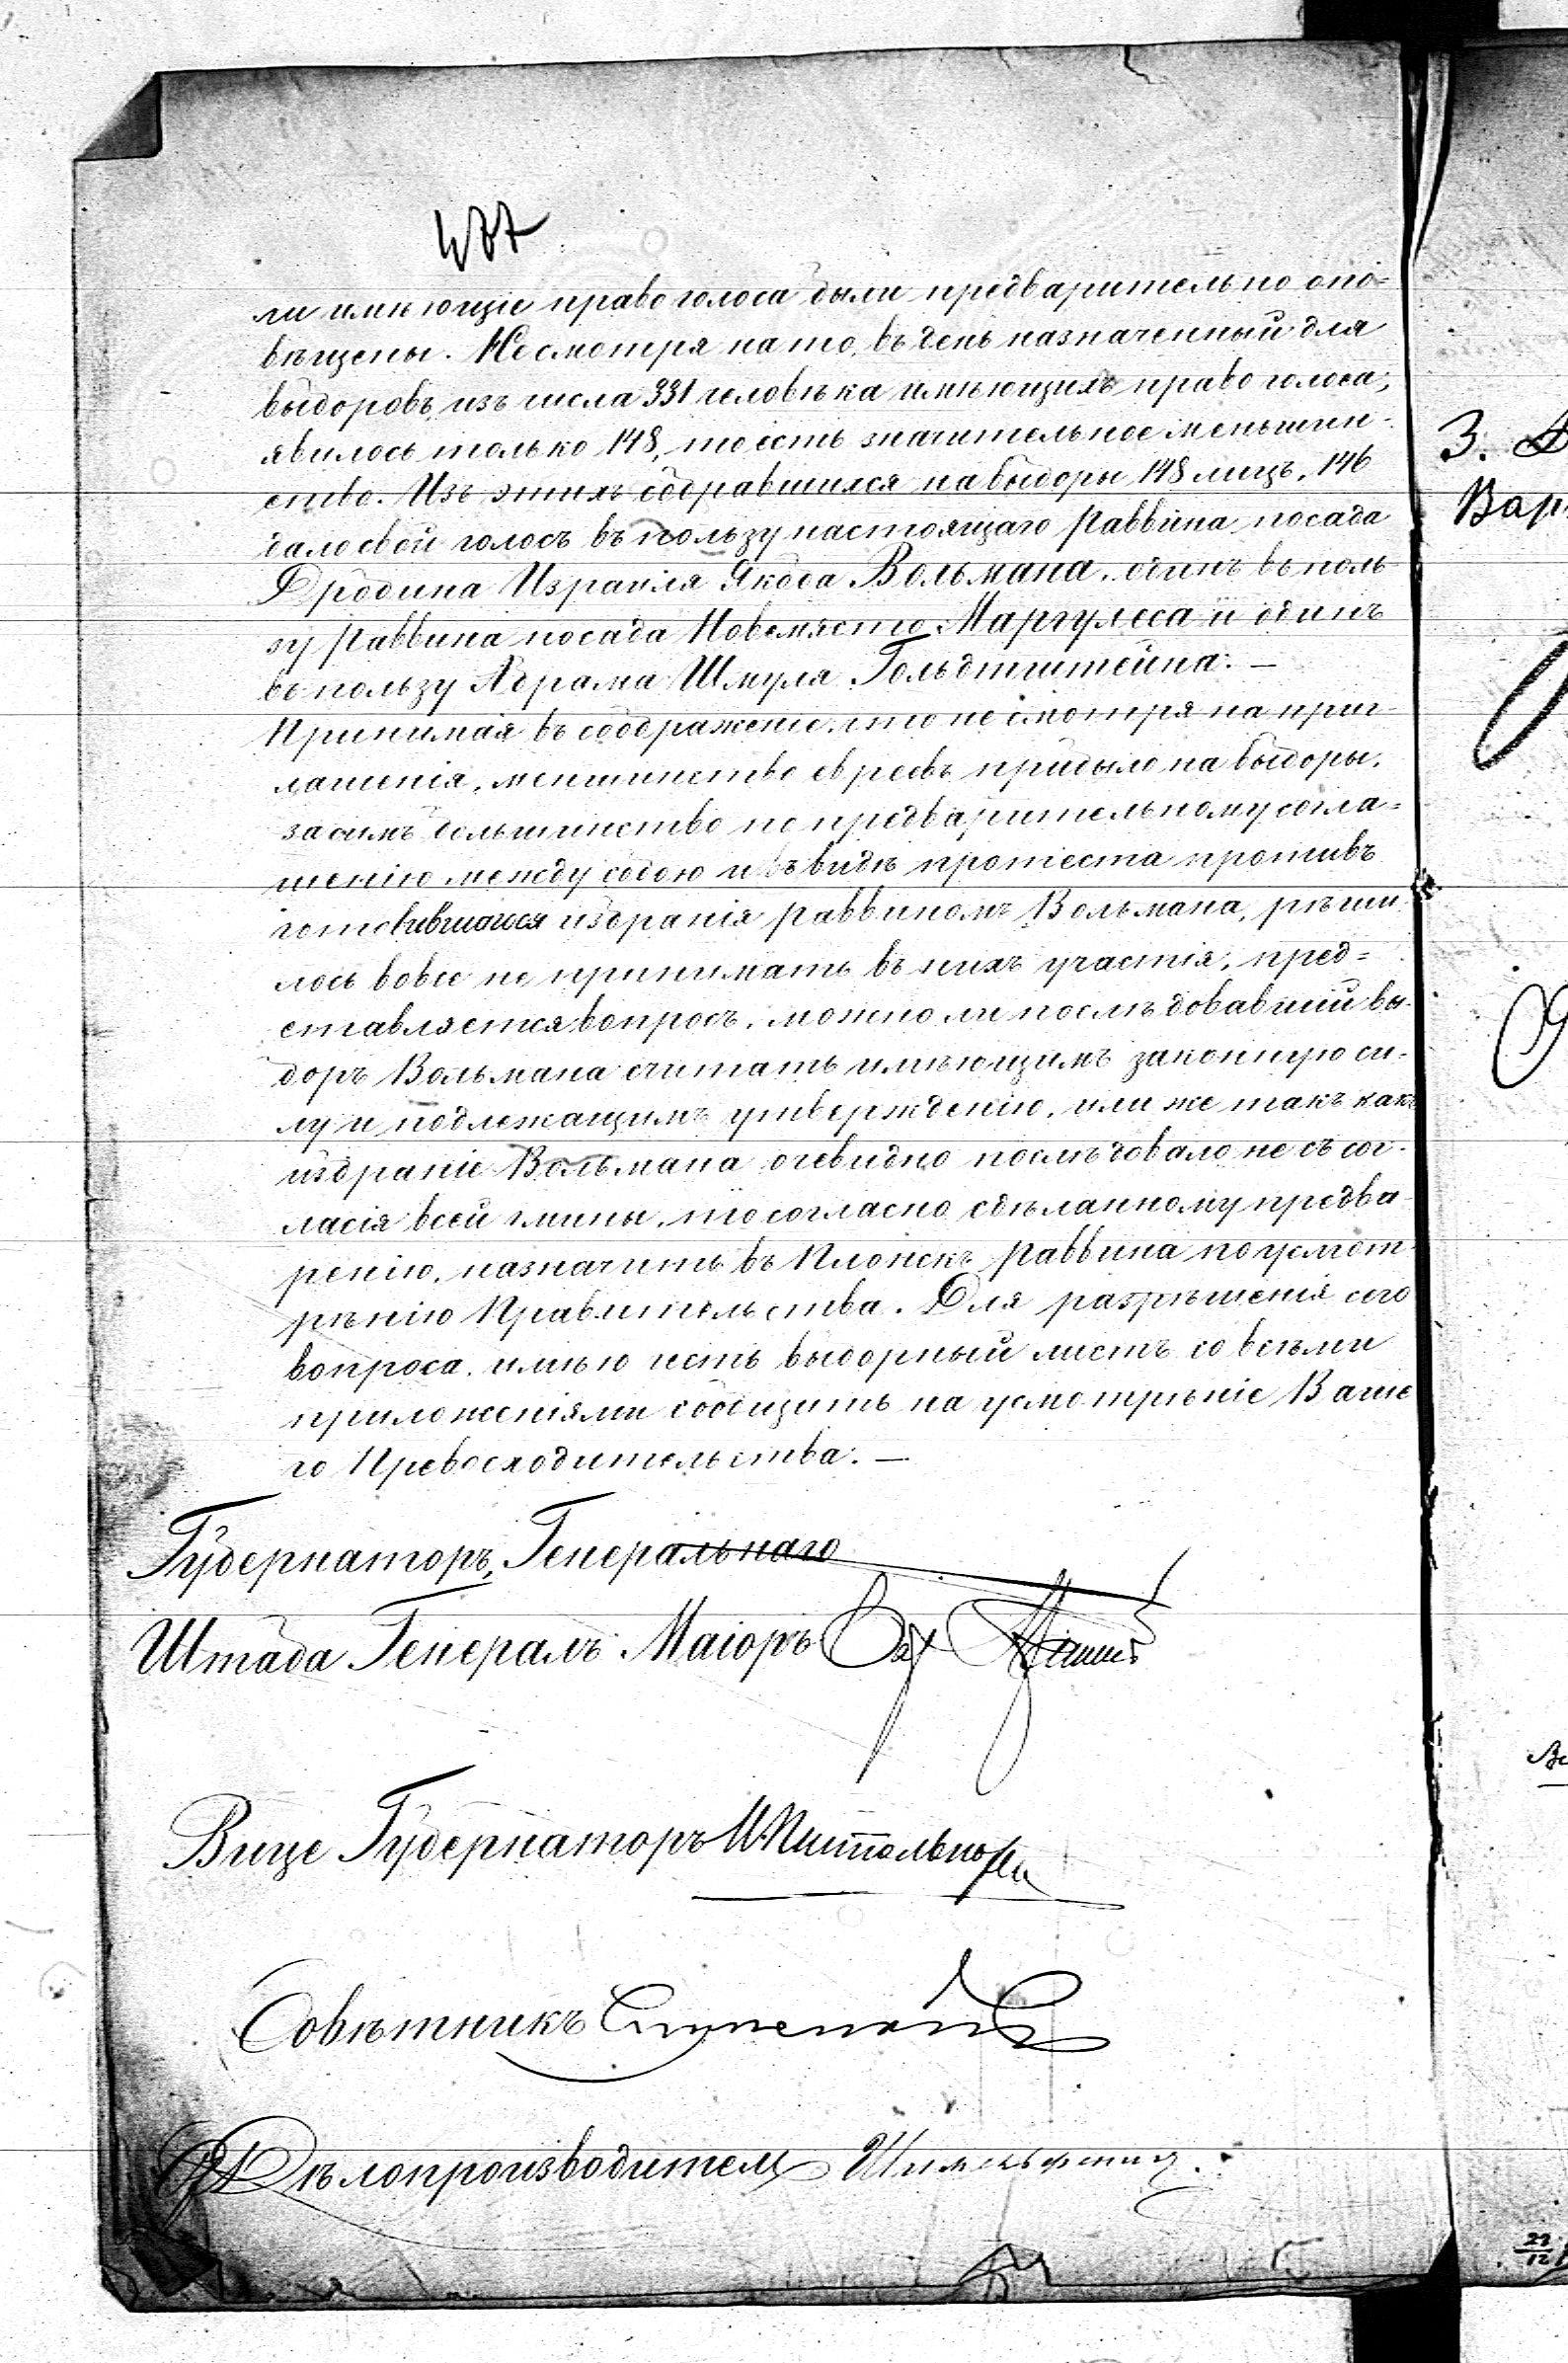 477
ли имѣющіе право голоса были предварительно опо=
вѣщены. Несмотря на то, въ день назначенный для
выборовъ, изъ числа 331 человѣка имѣющихъ право голоса,
явилось только 148, то есть значительное меньшин-
ство. Изъ этихъ собравшихся на выборы 148 лицъ, 146
дало свой голосъ въ пользу настоящаго раввина посада
Дробина Израиля Якоба Вольмана, одинъ въ поль-
зу раввина посада Новемясто Маргулеса и одинъ
въ пользу Абрама Шмуля Гольдштейна. —
Принимая въ соображеніе, что не смотря на приг-
лашенія, меншинство евреевъ прибыло на выборы,
за симъ большинство по предварительному согла=
шенію между собою и въ видѣ протеста противъ
готовившагося избранія раввиномъ Вольмана, рѣши
лось вовсе не принимать въ нихъ участія, пред=
ставляется вопросъ, можно ли послѣдовавшій вы-
боръ Вольмана считать имѣющимъ законную си-
лу и подлежащимъ утвержденію, или же такъ какъ
избраніе Вольмана очевидно послѣдовало не съ сог-
ласія всей гмины, то согласно сдѣланному предва-
ренію, назначить въ Плонскъ раввина по усмот-
рѣнію Правительства. Для разрѣшенія сего
вопроса, имѣю честь выборный листъ со всѣми
приложеніями сообщить на усмотрѣніе Ваше
го Превосходительства. —
Губернаторъ, Генеральнаго
Штаба Генералъ Маіоръ
Вице Губернаторъ
Совѣтникъ
Дѣлопроизводитель
3.
Вар
22
12